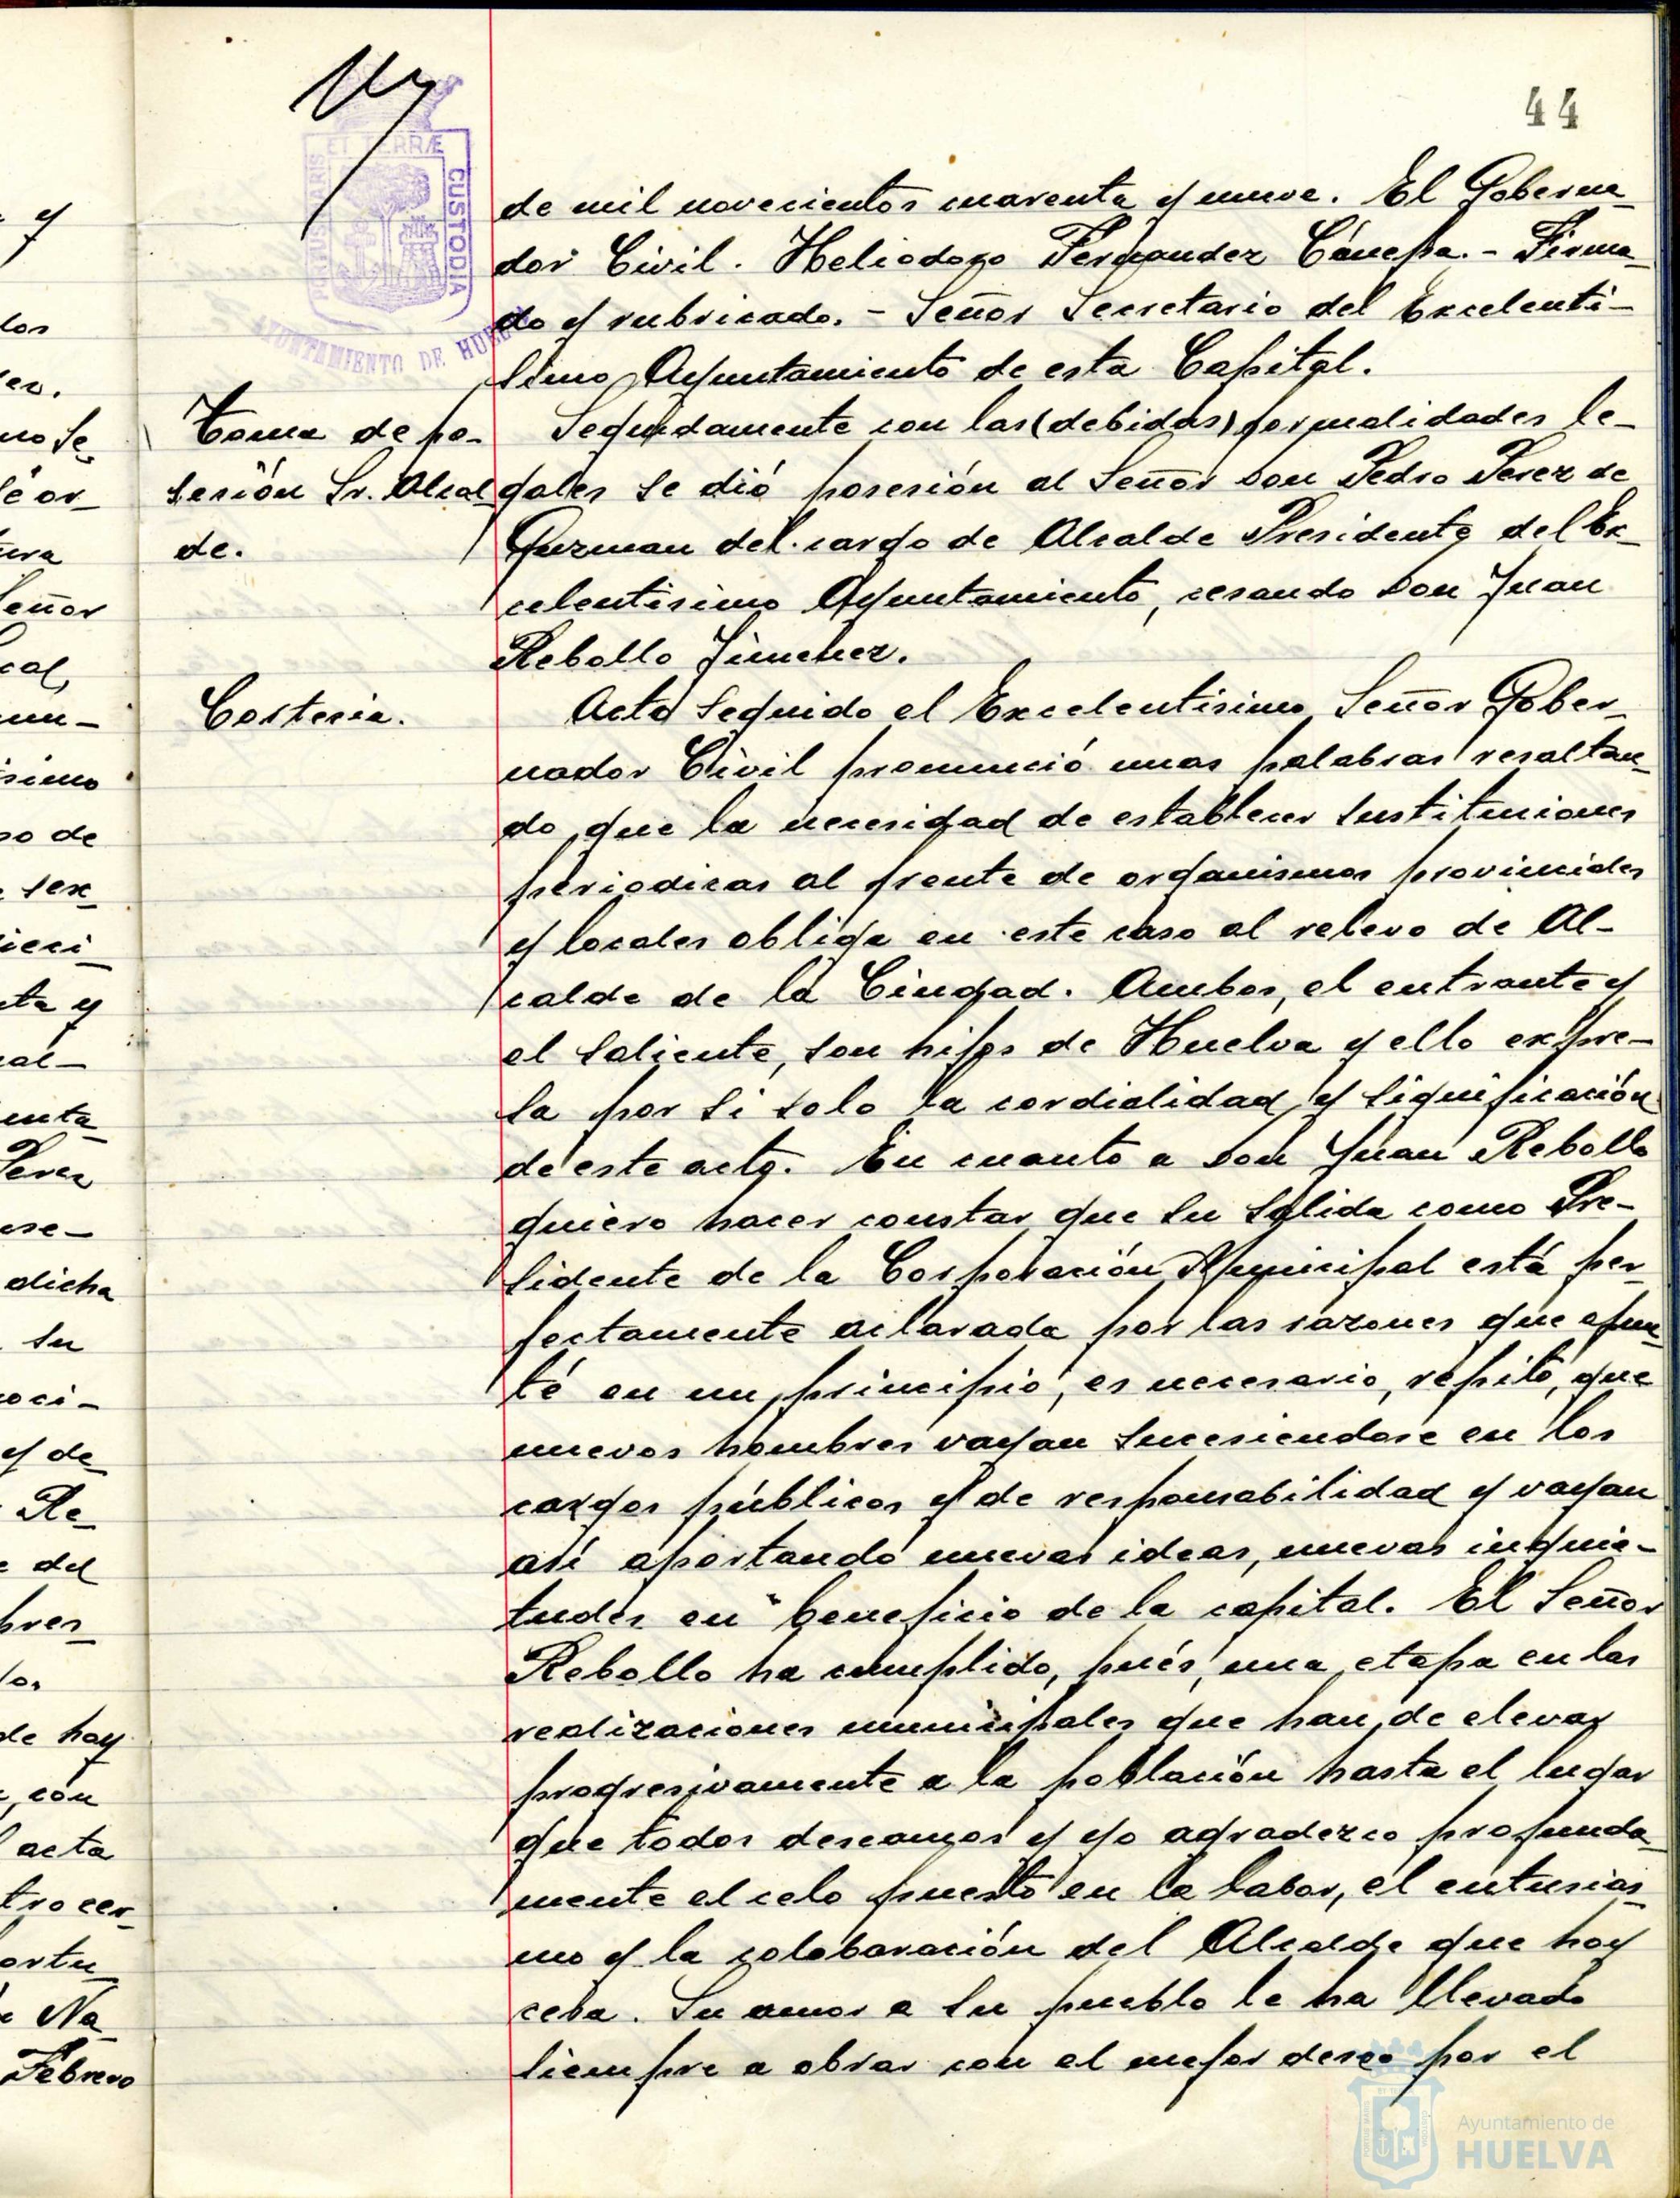 44
PORTUS MARIS ET TERRÆ CUSTODIA
AYUNTAMIENTO DE HUELVA
de mil novecientos cuarenta y nueve. El Goberna-
dor Civil. Heliodoro Fernandez Cánepa.- Firma-
do y rubricado.- Señor Secretario del Excelenti-
simo Ayuntamiento de esta Capital.
Toma de po-
sesión Sr. Alcal-
de.
Seguidamente con las (debidas) formalidades le-
gales se dió posesión al Señor Don Pedro Perez de
Guzman del cargo de Alcalde Presidente del Ex-
celentisimo Ayuntamiento, cesando Don Juan
Rebollo Jimenez.
Cortesia.
Acto seguido el Excelentisimo Señor Gober-
nador Civil pronunció unas palabras resaltan-
do que la necesidad de establecer sustituciones
periodicas al frente de organismos provinciales
y locales obliga en este caso al relevo de Al-
calde de la Ciudad. Ambos, el entrante y
el saliente, son hijos de Huelva y ello expre-
sa por si solo la cordialidad y significación
de este acto. En cuanto a Don Juan Rebollo
quiero hacer constar que su salida como Pre-
sidente de la Corporación Municipal está per-
fectamente aclarada por las razones que apun-
té en un principio, es necesario, repito, que
nuevos hombres vayan sucesiendose en los
cargos públicos y de responsabilidad y vayan
asi aportando nuevas ideas, nuevas inquie-
tudes en beneficio de la capital. El Señor
Rebollo ha cumplido, pués, una etapa en las
realizaciones municipales que han de elevar
progresivamente a la población hasta el lugar
que todos deseamos y yo agradezco profunda-
mente el celo puesto en la labor, el entusias-
mo y la colaboración del Alcalde que hoy
cesa. Su amor a su pueblo le ha llevado
siempre a obrar con el mejor deseo por el
Ayuntamiento de
HUELVA